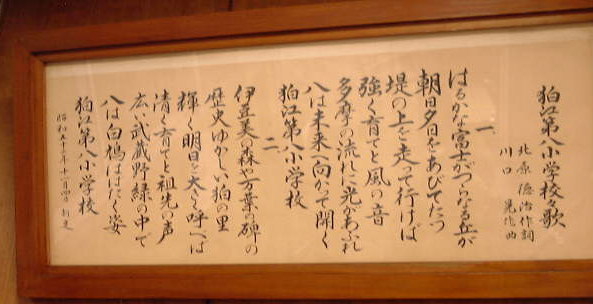 狛江第八小学校々歌
北原徳治作詞
川口 晃作曲
一
はるかな富士がつらなる丘が
朝日夕日をあびてたつ
堤の上を走って行けば
強く育てと風の音
多摩の流れに光があふれ
八は未来へ向かって開く
狛江第八小学校
二
伊豆美の森や万葉の碑の
歴史ゆかしい狛の里
輝く明日を大きく呼べば
清く育てと祖先の声
広い武蔵野緑の中で
八は白鶴はばたく姿
狛江第八小学校
昭和五十三年十一月四日 制定